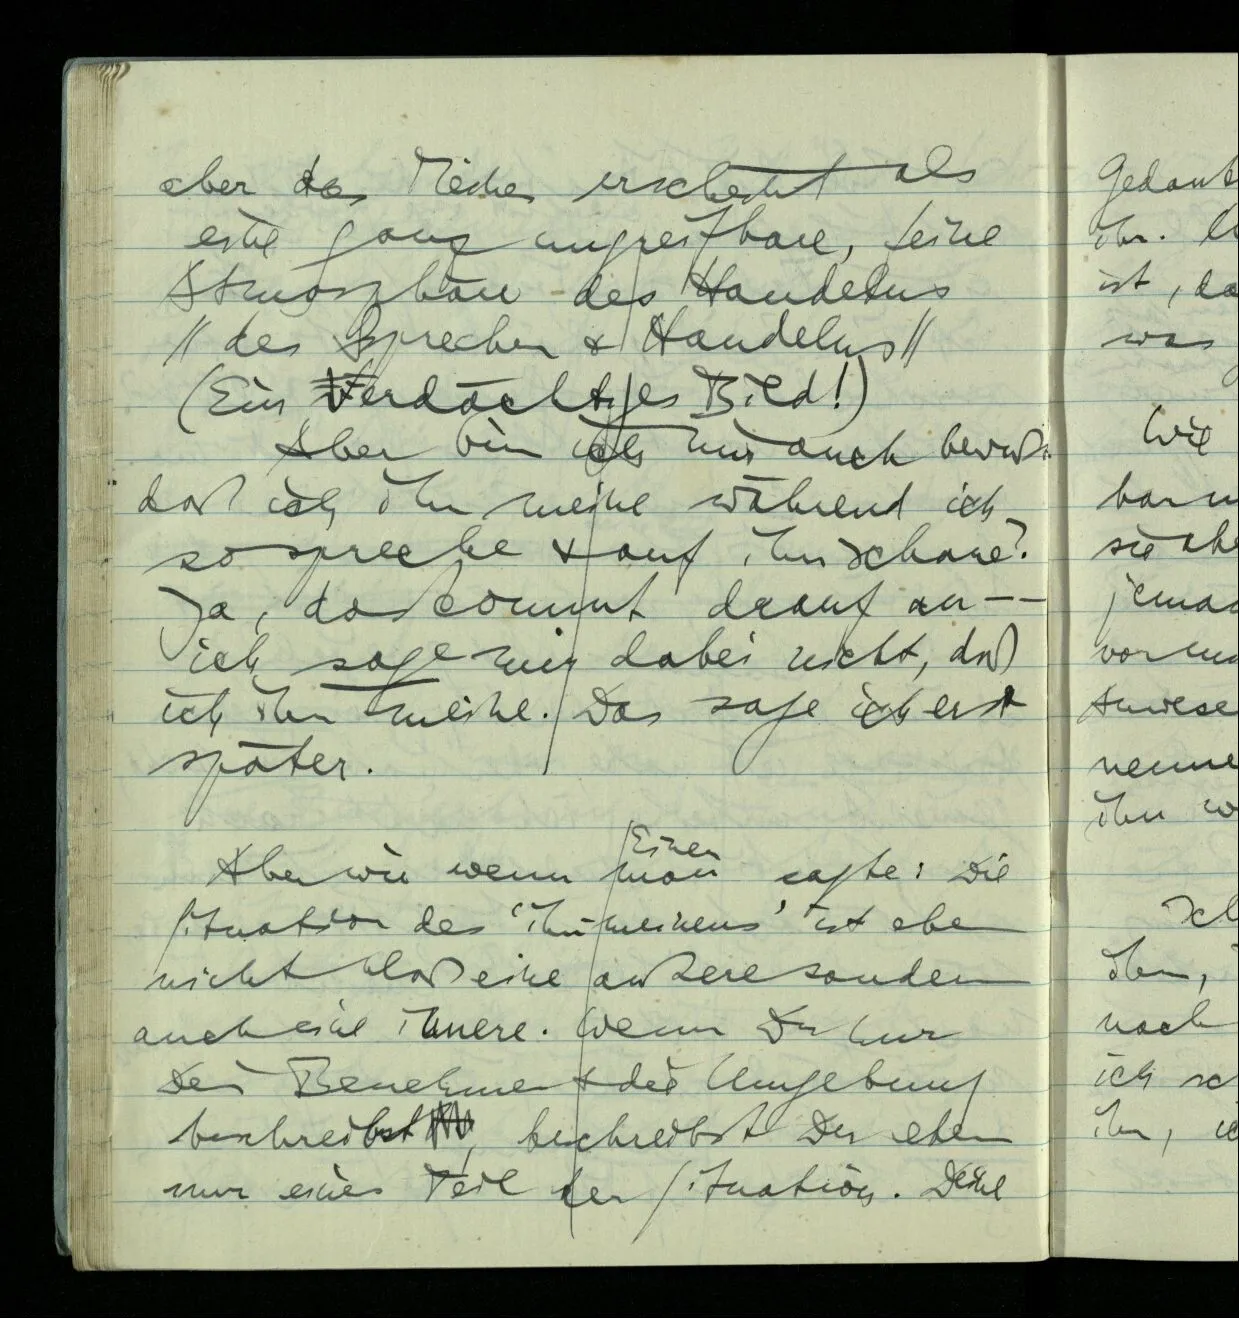 aber das Meinen erscheint als
eine ganz ungreifbare, feine
Atmosphäre des Handelns
// des Sprechen & Handelns//
(Ein verdächtiges Bild!)
Aber bin ich mir auch bewußt,
daß ich ihn meine während ich
so spreche & auf ihn schaue?
Ja, das kommt drauf an--
ich sage mir dabei nicht, daß
ich ihn meine. Das sage ich erst
später.
Einer
Aber wie wenn man sagte: Die
Situation des 'ihn-meinens' ist eben
nicht bloß eine äußere sondern
auch eine innere. Wenn Du nur
Dein Benehmen & die Umgebung
beschreibst, beschreibst Du eben
nur einen Teil der Situation. Deine
Gedank
ihn.
ist, da
was
Wie
bar
sie abe
jeman
Anwese
nenne
ihn w
Ich
ihn,
nach
ich sc
ihn, ic